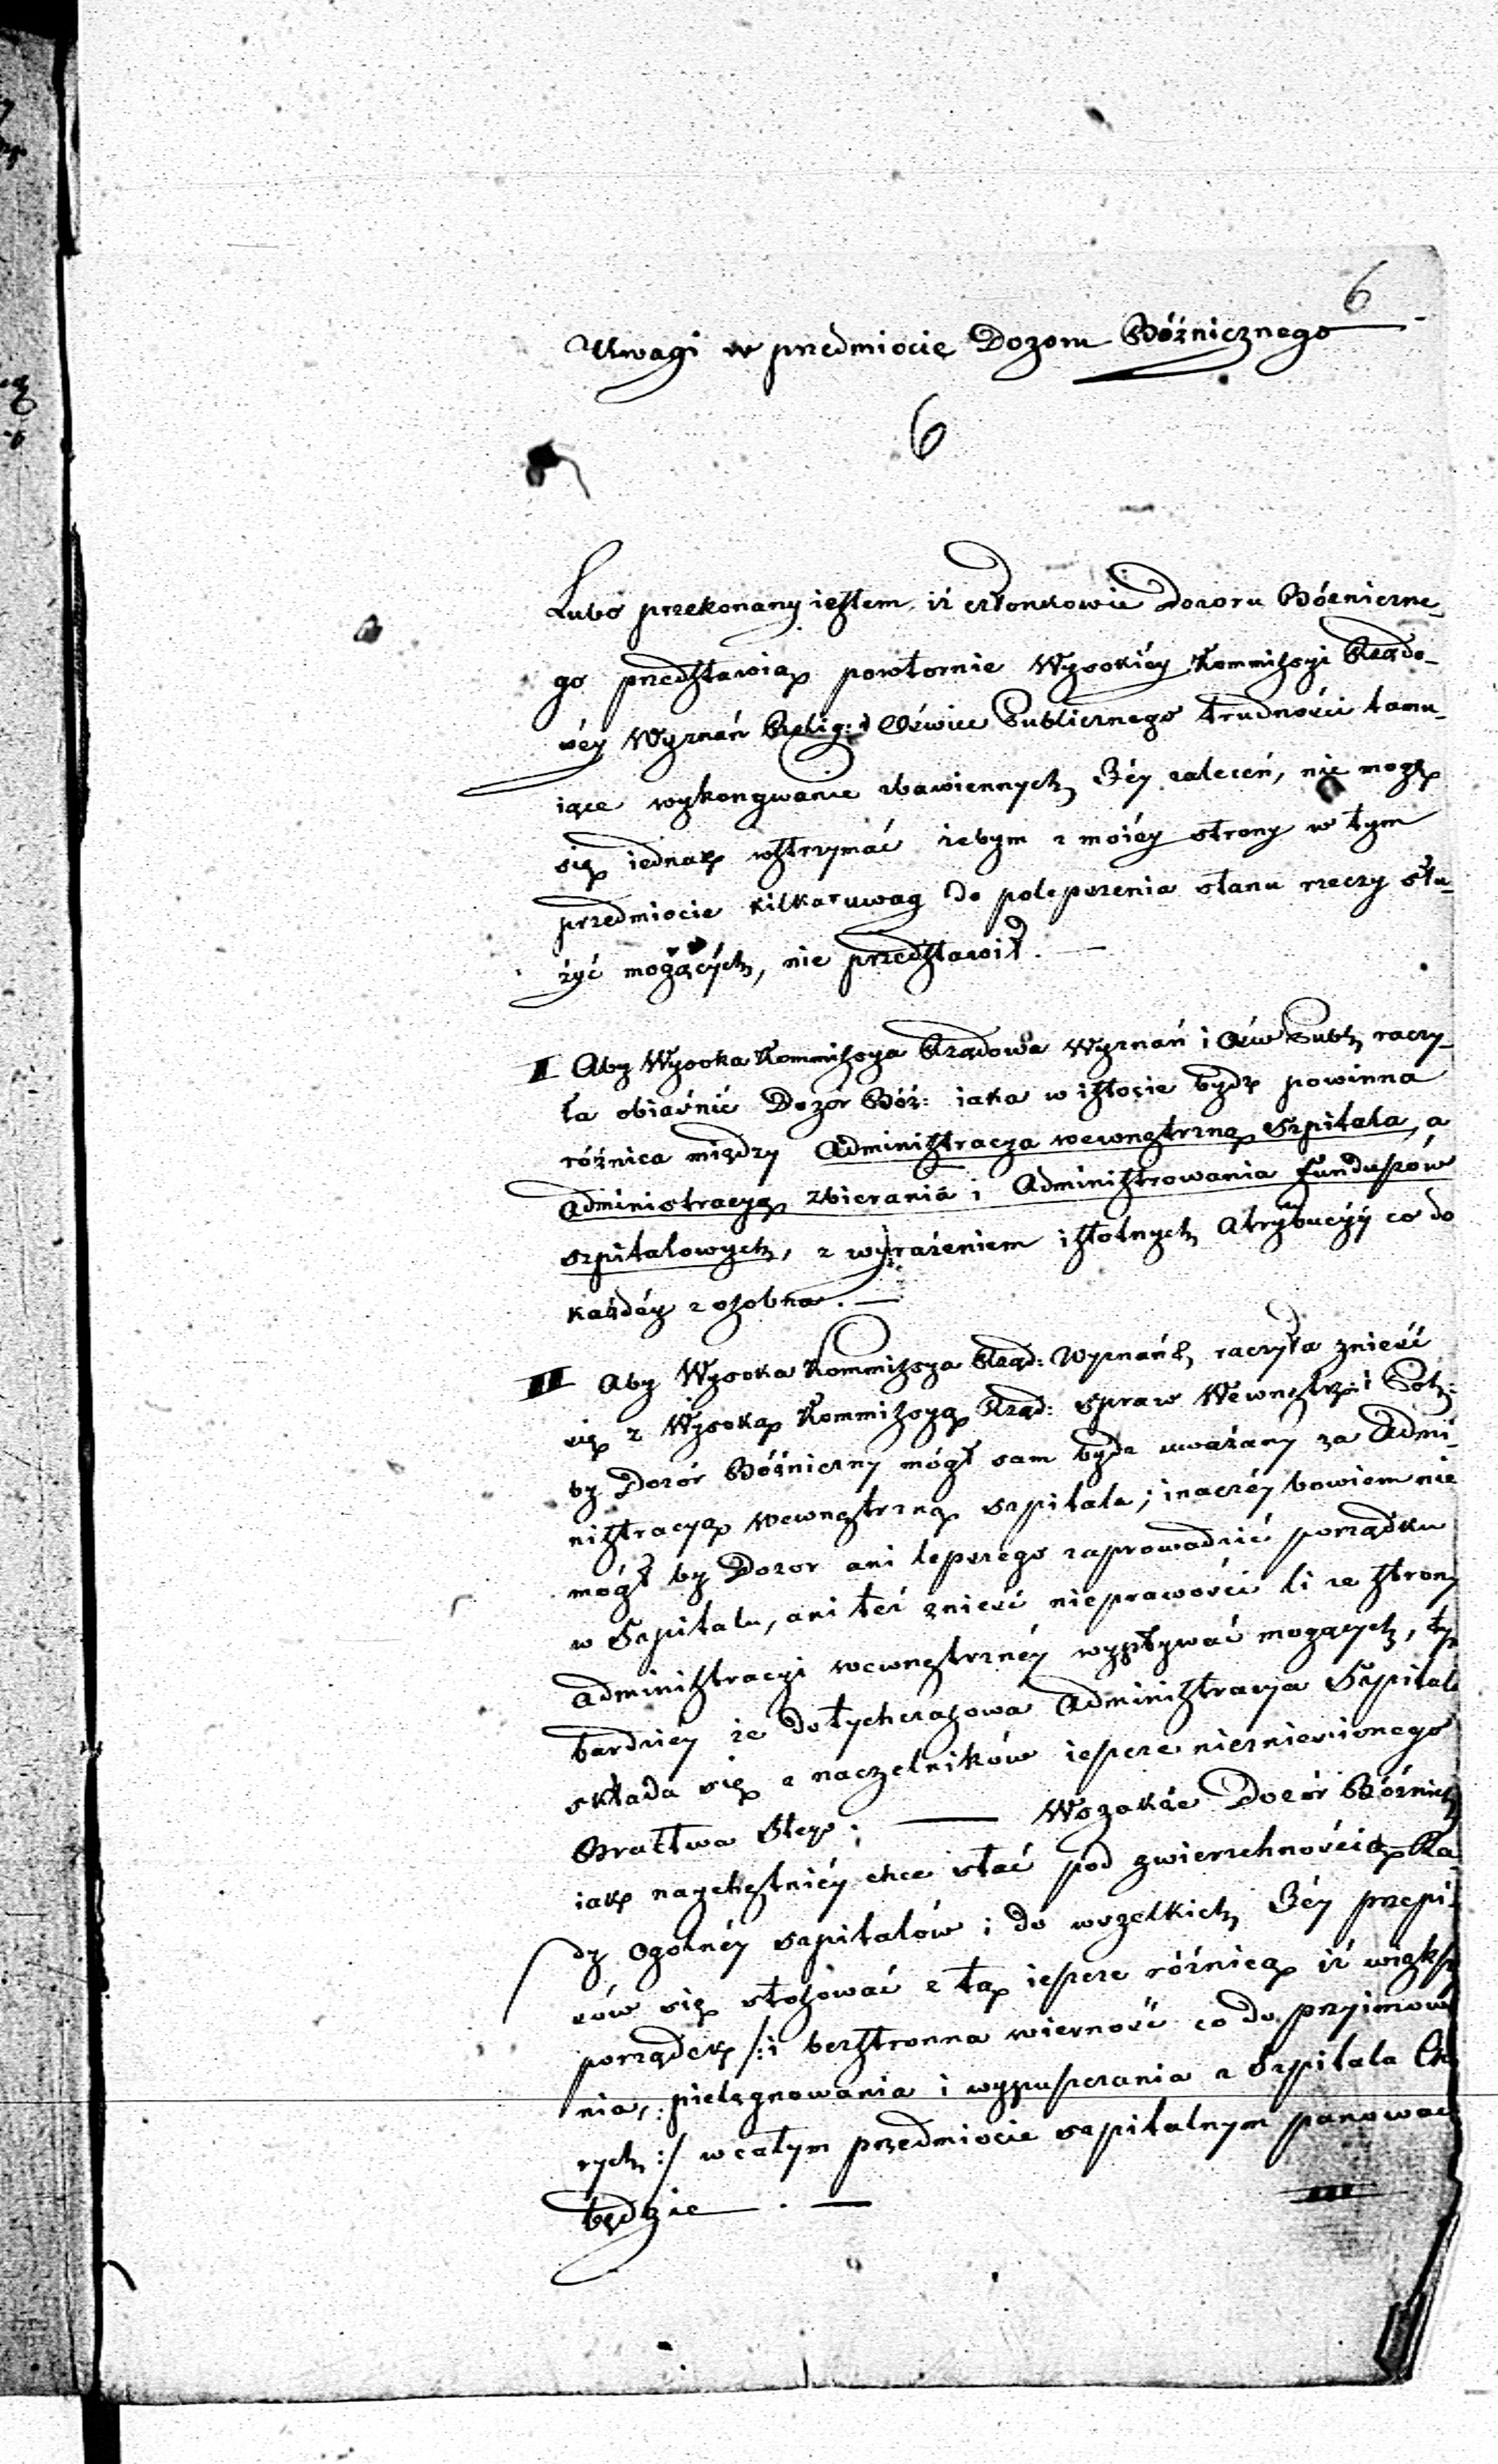 6
Uwagi w przedmiocie Dozoru Bóżnicznego
6
Lubo przekonany iestem, iż członkowie Dozoru Bóżniczne-
go przedstawią powtornie Wysokiéy Kommissyi Rządo-
wéy Wyznań Relig: i Oświec Publicznego trudności tamu-
iące wykonywanie zbawiennych Jéy zaleceń, nie mogę
się iednak wstrzymać żebym z moiéy strony w tym
przedmiocie kilka uwag do polepszenia stanu rzeczy słu-
żyć mogących, nie przedstawił. —
I Aby Wysoka Kommissya Rządowa Wyznań i Ośw Publ raczy-
ła obiaśnić Dozór Bóż: iaka w istocie bydź powinna
różnica między Administracya wewnętrzną Szpitala, a
Administracyą zbierania i Administrowania funduszów
szpitalowych, z wyrażeniem istotnych Atrybucyy co do
każdéy z osobna. —
II Aby Wysoka Kommissya Rząd: Wyznań raczyła znieść
się z Wysoką Kommissyą Rząd: Spraw Wewnętrz: i Pol:
by Dozór Bóżniczny mógł sam bydź uważany za Admi-
nistracyą wewnętrzną szpitala; inaczéy bowiem nie
mógł by Dozor ani lepszego zaprowadzić porządku
w Szpitalu, ani też znieść nieprawości li ze strony
Administracyi wewnętrznéy wypływać mogących, tym
bardziéy że dotychczasowa Administracya Szpitala
składa się z naczelników ieszcze nieznieśionego
Bractwa Steg. — Wszakże Dozór Bóżnicz
iak naychętniéy chce stać pod zwierzchnością Ra-
dy Ogólnéy szpitalów i do wszelkich Jéy przepi-
sów się stosować z tą ieszcze różnicą iż większy
porządek /: i bezstronna wierność co do przyimowa
nia, pielęgnowania i wypuszczania z Szpitala Cho
rych :/ w całym przedmiocie szpitalnym panować
będzie. —
III